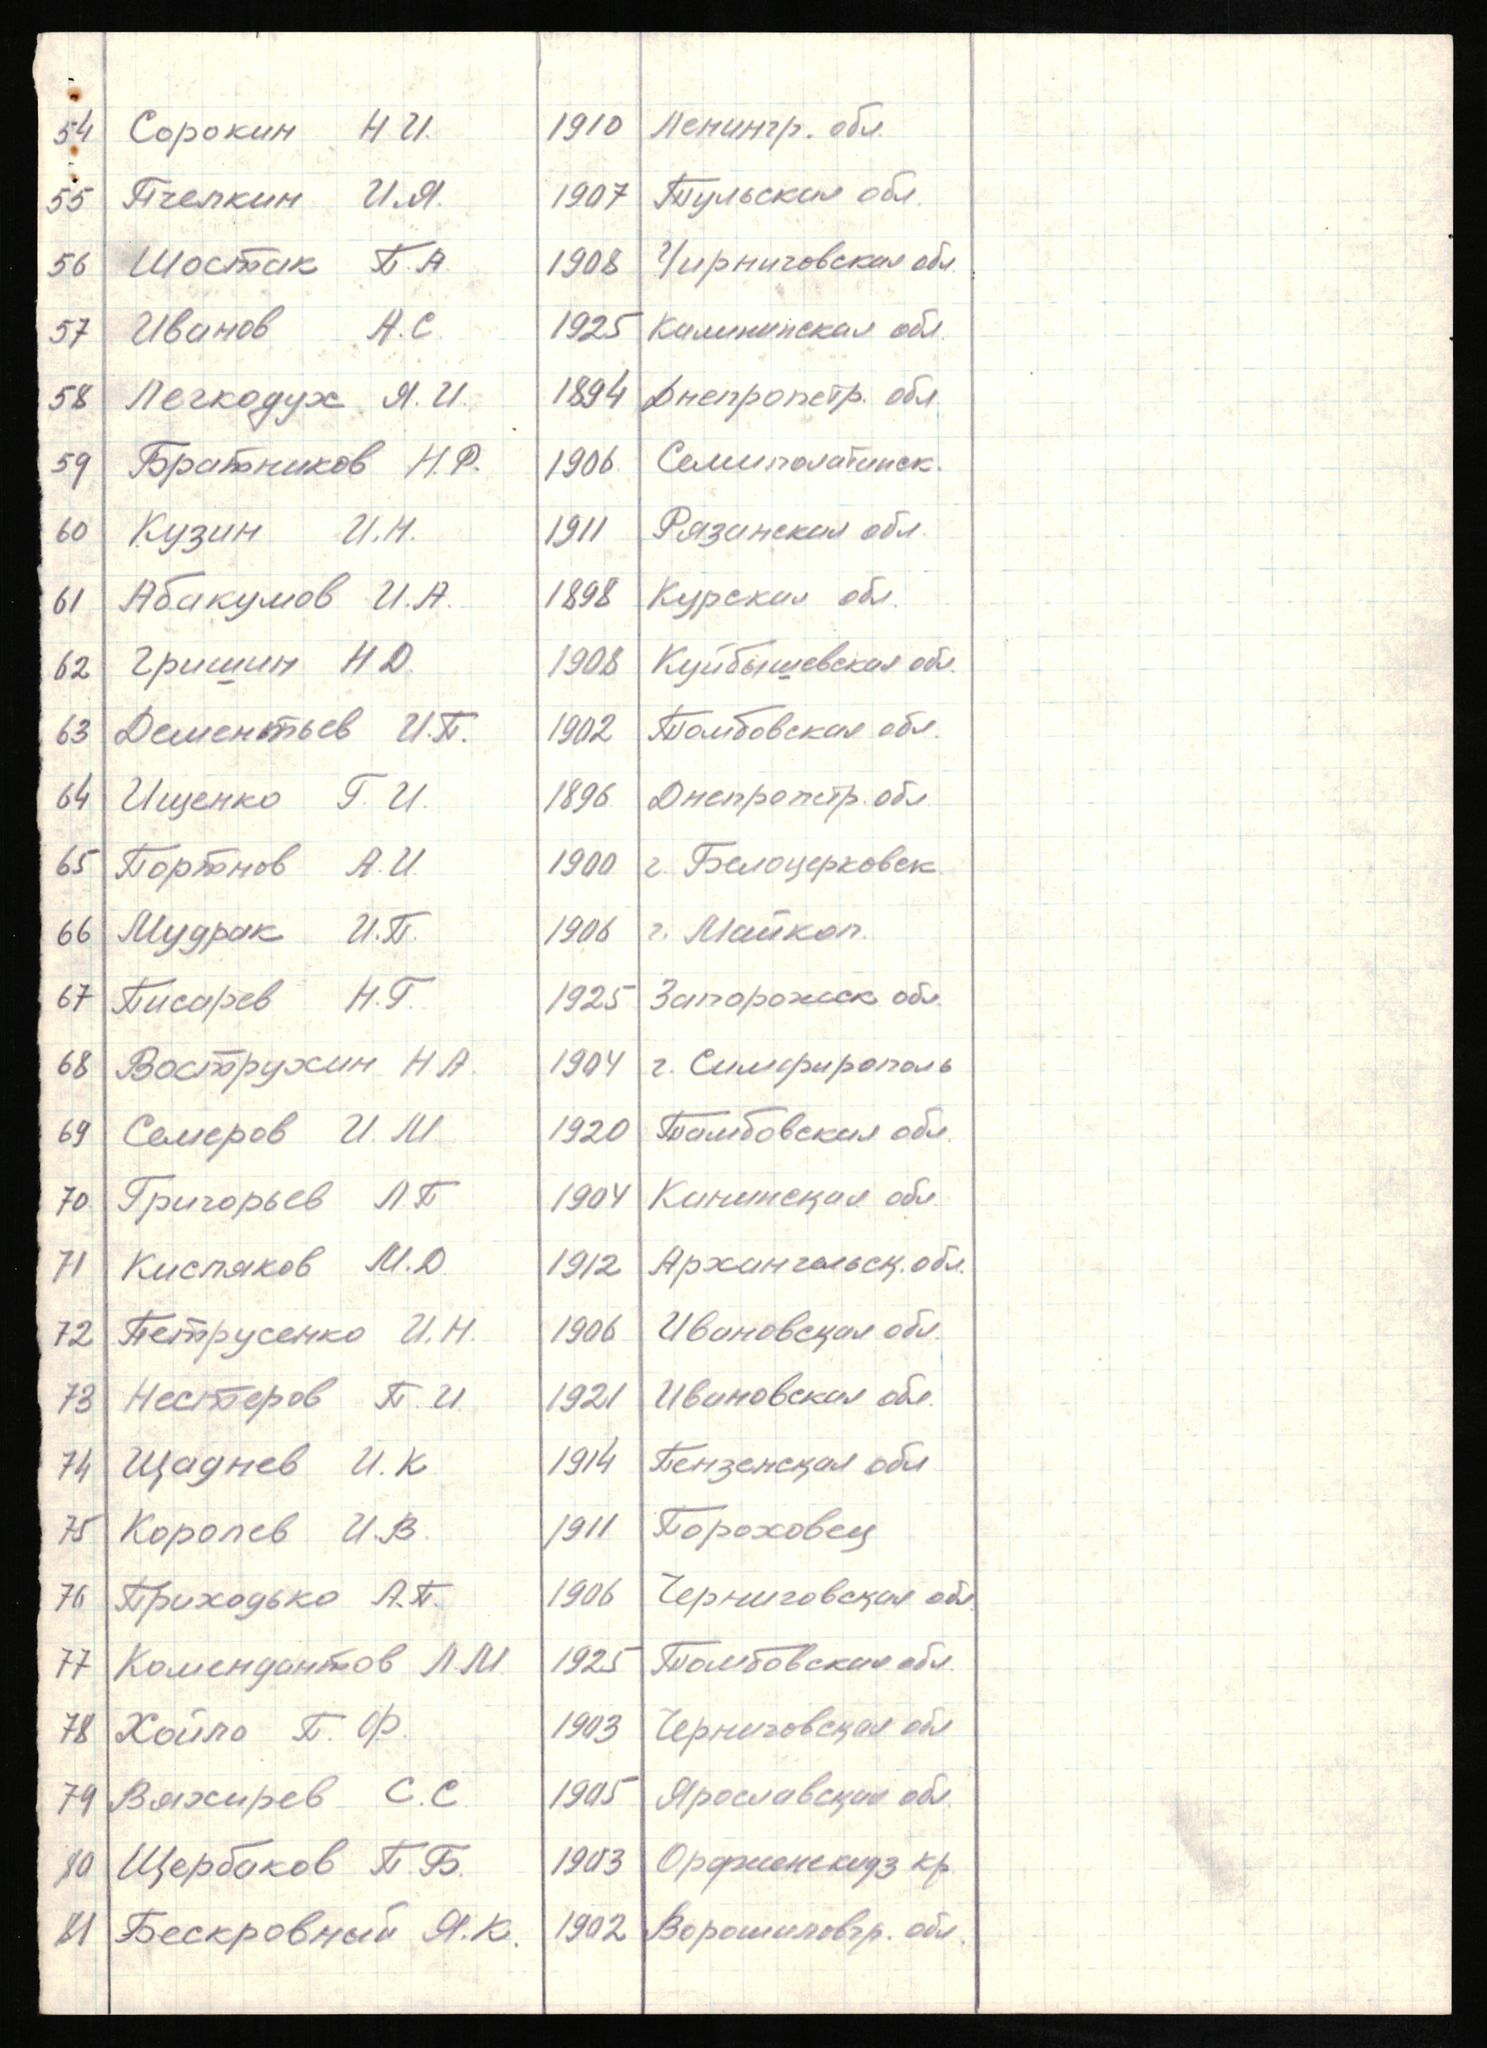 54 Сорокин Н И. 1910 Ленингр. обл.
55 Пчелкин И.Я. 1907 Тульская обл.
56 Шостак П.А. 1908 Чирниговская обл.
57 Иванов А.С 1925 Калининская обл.
58 Легкодух Я.И. 1894 Днепропетр. обл
59 Братников Н.Р. 1906 Семиполатинск.
60 Кузин И.Н. 1911 Рязанская обл.
61 Абакумов И.А. 1898 Курская обл.
62 Гришин Н Д. 1908 Куйбышевская обл.
63 Дементьев И.П. 1902 Томбовская обл.
64 Ищенко Г. И. 1896 Днепропетр. обл
65 Портнов А.И. 1900 г. Белоцерковск
66 Мудрак И.П. 1906 г. Майкоп.
67 Писарев Н.Г. 1925 Запорожск обл.
68 Вострухин Н А. 1904 г. Симфирополь
69 Семеров И. М 1920 Тамбовская обл.
70 Григорьев Л П 1904 обл.
71 Кисляков М.Д. 1912 Архангальск. обл.
72 Петрусенко И.Н. 1906 Ивановская обл.
73 Нестеров П. И 1921 Ивановская обл.
74 Щаднев И. К 1914 Пензенская обл
75 Королев И.В. 1911 Гороховец
76 Приходько А.П. 1906 Черниговская обл.
77 Комендантов Л.М. 1925 Томбовская обл.
78 Хойло П. Ф. 1903 Черниговская обл
79 Вяхирев С.С 1905 Ярославская обл.
80 Щербаков П.Б. 1903 кр.
81 Бескровный Я.К. 1902 Ворошиловгр. обл.